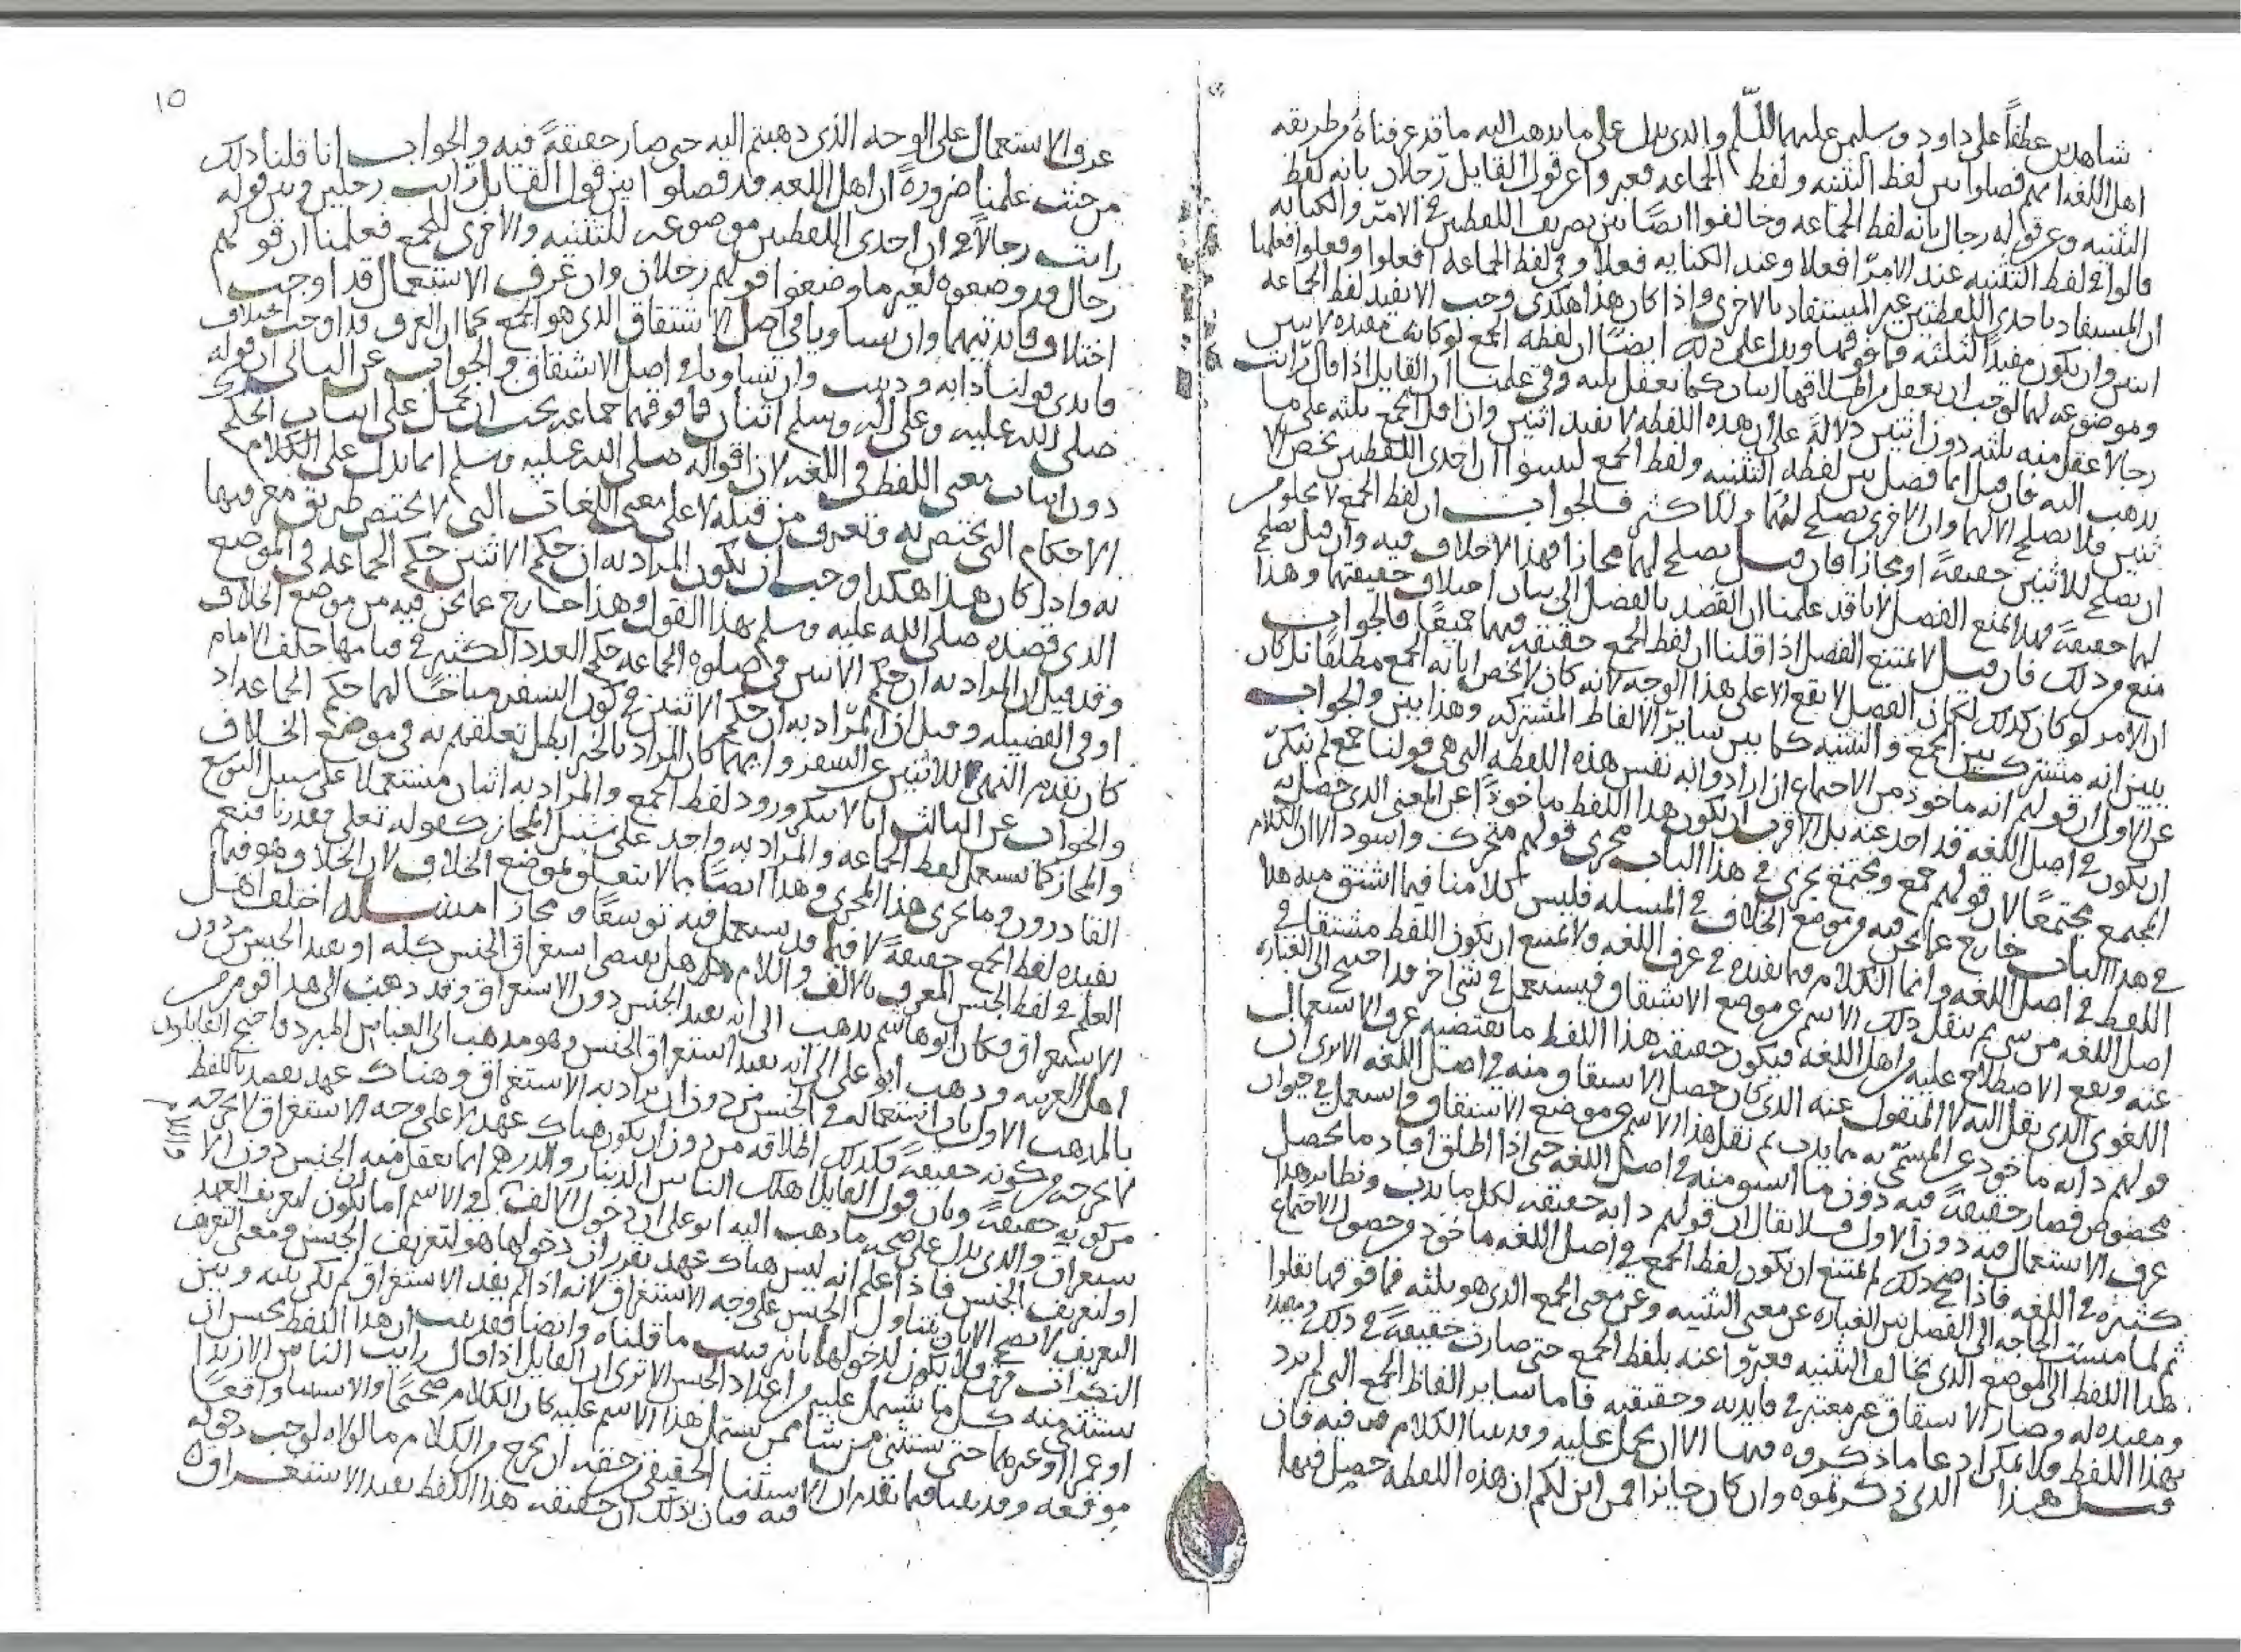 شاهدين عطفاً على داود وسليمن عليهما السلم والذي يدل على ما يذهب اليه ما قد عرفناه من طريقه
اهل اللغه انهم فصلوا بين لفظ التثنيه ولفظ الجماعه فعبروا عن قول القايل رجلان بانه لفظ
التثنيه وعن قوله رجال بانه لفظ الجماعه وخالفوا ايضًا بين تصريف اللفظين في الامر والكنايه
قالوا في لفظ التثنيه عند الامر افعلا وعند الكنايه فعلا وفي لفظ الجماعه افعلوا وفعلوا فعلمنا
ان المستفاد باحدى اللفظتين غير المستفاد بالاخرى واذا كان هذا هكذى وجب الا يفيد لفظ الجماعه
اثنين وان يكون مفيدًا لثلثه فما فوقها ويدل على ذلك ايضًا ان لفظه الجمع لو كانت مفيده لاثنين
وموضوعه لهما لوجب ان يعقل من اطلاقها اثنان كما يعقل ثلثه وفي علمنا ان القايل اذا قال رايت
رجالا عقل منه ثلثه دون اثنين دلالةً على ان هذه اللفظه لا تفيد اثنين واذا اقل الجمع ثلثه على ما
يذهب اليه فان قيل انما فصل بين لفظه التثنيه ولفظ الجمع ليبينوا ان احدى اللفظتين تخص الا
ثنين فلا تصلح الا لهما وان الاخرى تصلح لهما ولما كثر فالجواب ان لفظ الجمع لا يخلو من
ان يصلح للاثنين حقيقةً او مجازا فان قيل يصلح لهما مجازا فهذا لا خلاف فيه وان قيل يصلح
لهما حقيقةً فهذا يمنع الفصل لانا قد علمنا ان القصد بالفصل الى بيان اختلاف حقيقتهما وهذا
منع من ذلك فان قيل لا يمتنع الفصل اذا قلنا ان لفظ الجمع حقيقته فيهما جميعًا فالجواب
ان الامر لو كان كذلك لكان الفصل لا يقع الا على هذا الوجه لانه كان لا يخص بانه الجمع مطلقا بل كان
يبين انه مشترك بين الجمع والتثنيه كما بين ساير الالفاظ المشتركه وهذا بين والجواب
عن الاول ان قولهم انه ماخوذ من الاجتماع ان ارادوا به نفس هذه اللفظه التي هي قولنا جمع لم ننكر
ان يكون في اصل اللغه قد اخذ عنه بل الاقرب ان يكون هذا اللفظ ماخوذًا عن المعنى الذي حصل به
المجمع مجتمعًا لان قولهم جمع ومجتمع يجري في هذا الباب مجرى قولهم متحرك واسود الا ان الكلام
في هذا الباب خارج عما نحن فيه وموضع الخلاف في المسله فليس كلامنا فيما اشتق منه هذا
اللفظ في اصل اللغه وانما الكلام فيما يفيده في عرف اللغه ولا يمتنع ان يكون اللفظ مشتقا في
اصل اللغه من شي ثم ينقل ذلك الاسم عن موضع الاشتقاق فيستعمل في شي اخر قد احتيج الى العباره
عنه ويقع الاصطلاح عليه من اهل اللغه فيكون حقيقه هذا اللفظ ما يقتضيه عرف الاستعمال
اللغوي الذي نقل اليه لا المنقول عنه الذي كان حصل الاشتقاق منه في اصل اللغه الا ترى ان
قولهم دابه ماخوذ عن المسمى به مما يدب ثم نقل هذا الاسم عن موضع الاشتقاق واستعمل في حيوان
مخصوص فصار حقيقةً فيه دون ما اشتق منه في اصل اللغه حتى اذا اطلق افاد ما يحصل
عرف الاستعمال فيه دون الاول فلا يقال ان قولهم دابه حقيقه لكل ما يدب ونظاير هذا
كثيره في اللغه فاذا صح ذلك لم يمتنع ان يكون لفظ الجمع في اصل اللغه ماخوذ من حصول الاجتماع
ثم لما مست الحاجه الى الفصل بين العباره عن معنى التثنيه وعن معنى الجمع الذي هو ثلثه فما فوقها نقلوا
هذا اللفظ الى الموضع الذي يخالف التثنيه فعبروا عنه بلفظ الجمع حتى صارت حقيقةً في ذلك
ومفيده له وصار الاشتقاق غير معتبر في فايدته وحقيقته فاما ساير الفاظ الجمع التي لم يرد
بهذا اللفظ فلا يمكن ادعا ما ذكروه فيها الا ان يحمل عليه وقد بينا الكلام فيه فان
قيل هذا الذي ذكرتموه وان كان جايزا فمن اين لكم ان هذه اللفظه حصل فيها
١٥
عرف الاستعمال على الوجه الذي ذهبتم اليه حتى صار حقيقةً فيه والجواب انا قلنا ذلك
من حيث علمنا ضرورةً ان اهل اللغه قد فصلوا بين قول القايل رايت رجلين وبين قوله
رايت رجالاً في ان احدى اللفظتين موضوعه للتثنيه والاخرى للجمع فعلمنا ان قولهم
رجال قد وضعوه لغير ما وضعوا قولهم رجلان وان عرف الاستعمال قد اوجب
اختلاف فايدتيهما وان تساويا في اصل الاشتقاق الذي هو الجمع كما ان العرف قد اوجب اختلاف
فايدتي قولنا دابه ودبيب وان تساويا في اصل الاشتقاق والجواب عن الثاني ان قوله
صلى الله عليه وعلى اله وسلم اثنان فما فوقهما جماعه يجب ان يحمل على اثبات الحكم
دون اثبات معنى اللفظ في اللغه لان اقواله صلى الله عليه وسلم انما تدل على الكلام
الاحكام التي تختص به وتعرف من قبله لا على معنى اللغات التي لا يختص طريق معرفتها
به واذا كان هذا هكذا وجب ان يكون المراد به ان حكم الاثنين حكم الجماعه في الموضع
الذي قصده صلى الله عليه وسلم بهذا القول وهذا خارج عما نحن فيه من موضع الخلاف
وقد قيل ان المراد به ان حكم الاثنين في صلوه الجماعه حكم العدد الكثير في قيامهما خلف الامام
او في الفضيله وقيل ان المراد به ان حكم الاثنين في كون السفر مباحًا لهما حكم الجماعه اذ
كان تقدم النهي للاثنين عن السفر وايهما كان المراد بالخبر ابطل تعلقهم به في موضع الخلاف
والجواب عن الثالث انا لا ننكر ورود لفظ الجمع والمراد به اثنان مستعملا على سبيل التوسع
والمجاز كما يستعمل لفظ الجماعه والمراد به واحد على سبيل المجاز كقوله تعلى فقدرنا فنعم
القادرون وما يجري هذا المجرى وهذا ايضًا مما لا يتعلق بموضع الخلاف لان الخلاف هو فيما
يفيده لفظ الجمع حقيقةً لا فيما قد يستعمل فيه توسعًا ومجازا مسله اختلف اهل
العلم في لفظ الجنس المعرف بالالف واللام هل يقتضي استغراق الجنس كله او يفيد الجنس من دون
الاستغراق فكان ابو هاشم يذهب الى انه يفيد الجنس دون الاستغراق وقد ذهب الى هذا قوم من
اهل العربيه وذهب ابو علي الى انه يفيد استغراق الجنس وهو مذهب ابي العباس المبرد واحتج القايلون
بالمذهب الاول بان استعماله في الجنس من دون ان يراد به الاستغراق وهناك عهد يقصد باللفظ
لا يخرجه من كونه حقيقةً فكذلك اطلاقه من دون ان يكون هناك عهد لا على وجه الاستغراق لا يخرجه
من كونه حقيقةً وبان قول القايل اهلك الناس الدينار والدرهم انما يعقل منه الجنس دون الا
ستغراق والذي يدل على صحه ما ذهب اليه ابو علي ان دخول الالف في الاسم اما يكون لتعريف العهد
او لتعريف الجنس فاذا علم انه ليس هناك عهد تقرر ان دخولها هو لتعريف الجنس ومعنى التعريف
التعريف لا يصح الا بان يتناول الجنس على وجه الاستغراق لانه اذا لم يفد الاستغراق لم يكن بينه وبين
النكرات فرق ولا يكون لدخولها تاثير فثبت ما قلناه وايضا فقد ثبت ان هذا اللفظ يحسن ان
يستثنى منه كل ما يشتمل عليه من اعداد الجنس الا ترى ان القايل اذا قال رايت الناس الا زيدا
او عمرا او غيرهما حتى يستثنى من شا ممن يشتمل هذا الاسم عليه كان الكلام صحيحًا والاستثنا واقعًا
موقعه وقد بينا فيما تقدم ان الاستثنا الحقيقي حقه ان يخرج من الكلام ما لولاه لوجب دخوله
فيه فبان بذلك ان حقيقه هذا اللفظ يفيد الاستغراق